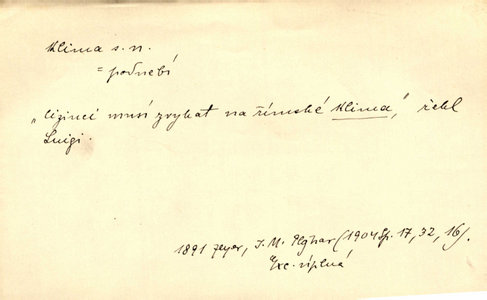 klima s. n.
= podnebí
„Cizinci musí zvykat na římské klima," řekl
Luigi.
1891 Zeyer, J. M. Plojhar (1904 Sp. 17, 32, 16).
Exc. úplná